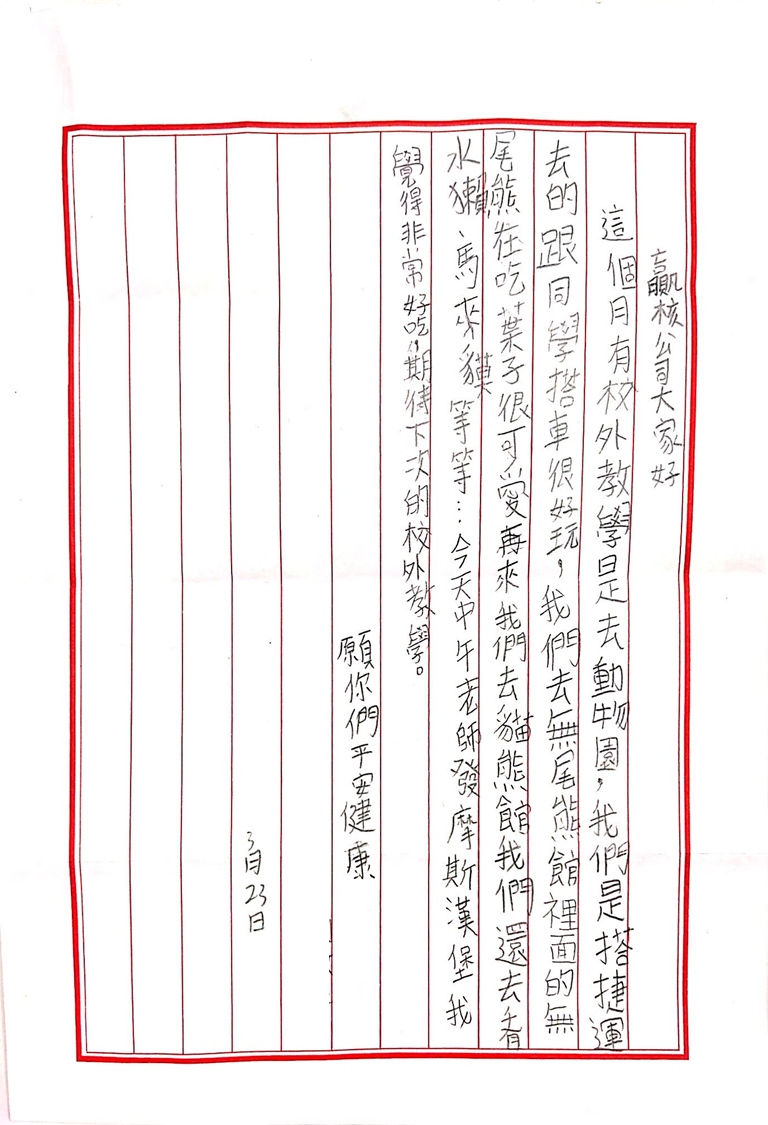 贏核公司大家好
這個月有校外教學是去動物園，我們是搭捷運
去的跟同學搭車很好玩，我們去無尾熊館裡面的無
尾熊在吃葉子很可愛再來我們去貓熊館我們還去看
水獺、馬來貘等等…今天中午老師發摩斯漢堡我
覺得非常好吃，期待下次的校外教學。
願你們平安健康
3月23日